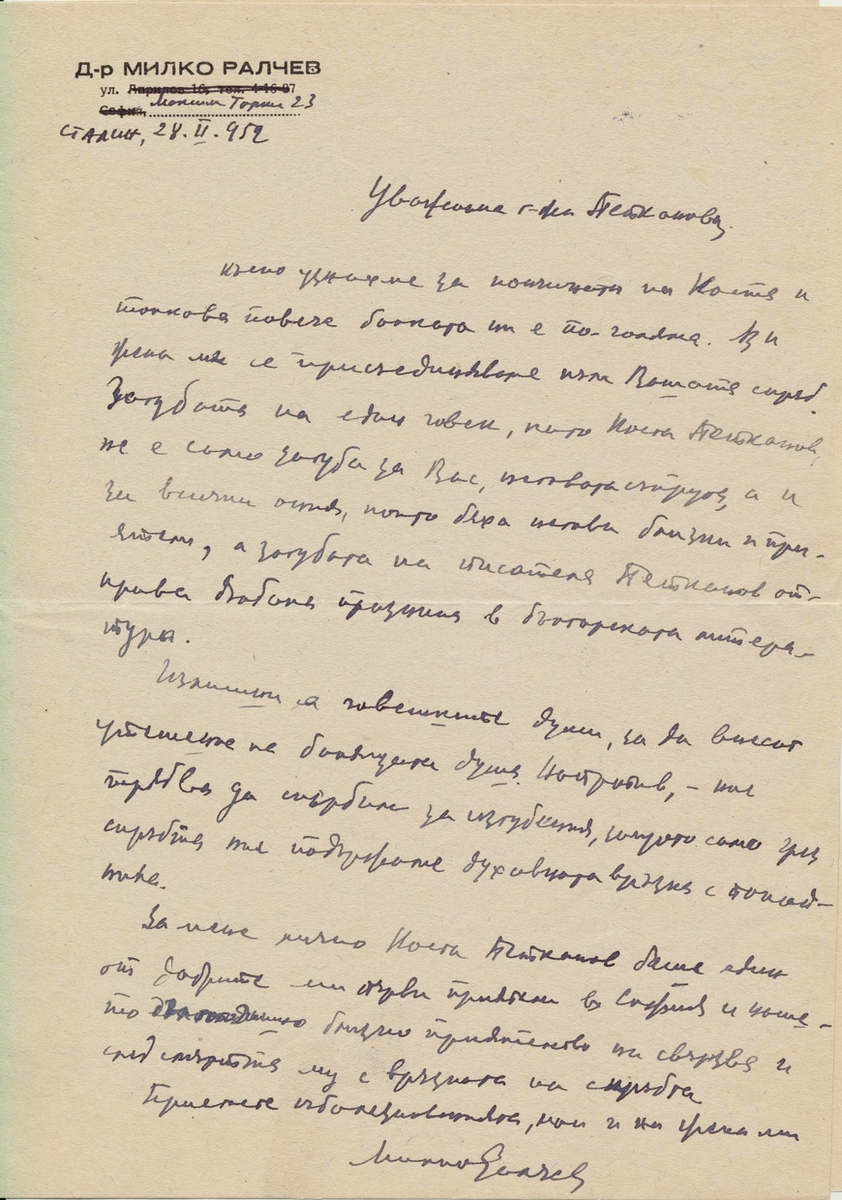 Д-р МИЛКО РАЛЧЕВ
ул. Лирилов 16, тел. 4-16-97
София, Максим Горки 23
СТАЛИН, 28.II.952
Уважаема г-жа Петканова,
късно узнахме за кончината на Коста и
толкова повече болката ни е по-голяма. Аз и
жена ми се присъединяваме към Вашата скръб.
Загубата на един човек, като Коста Петканов,
не е само загуба за Вас, неговата съпруга, а и
за всички ония, които бяха негови близки и при-
ятели, а загубата на писателя Петканов от-
крива дълбока празнина в българската литера-
тура.
Излишни са човешките думи, за да внесат
утешение на болящата душа. Напротив, – ние
трябва да скърбим за изгубения, защото само чрез
скръбта ние подържаме духовната връзка с покой-
ника.
За мене лично Коста Петканов беше един
от добрите ми първи приятели в София и наше-
то близко приятелство ни свързва и
след смъртта му с връзката на скръбта
Приемете съболезнованията, мои и на жена ми
Милко Ралчев